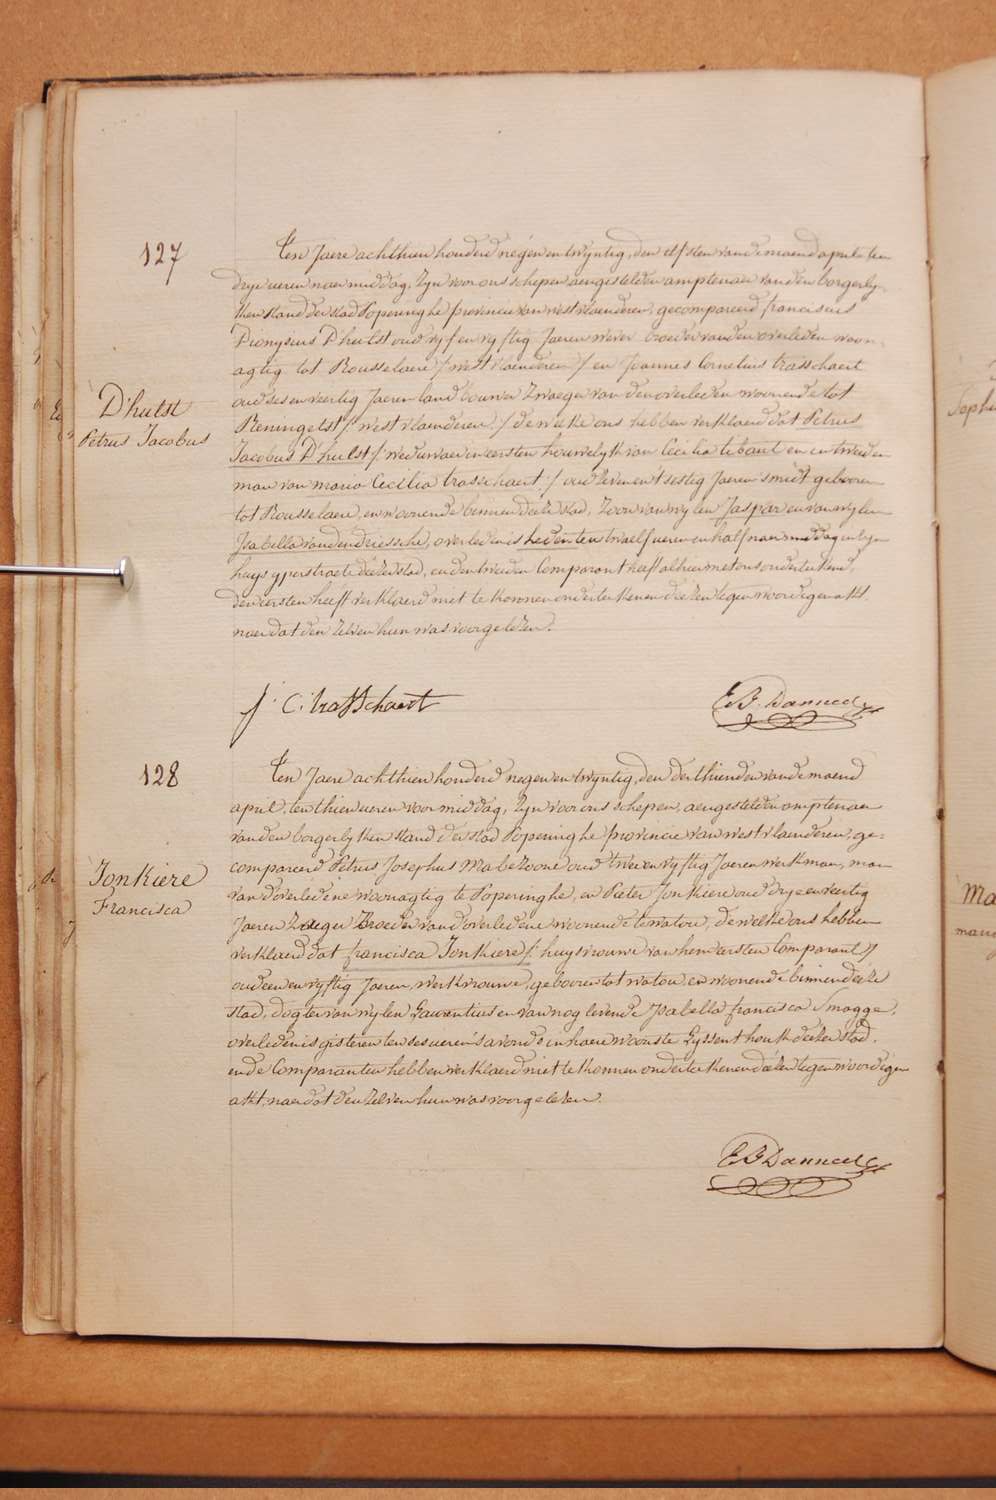 127
Ten Jaere achthien honderd negen en twyntig, den elfsten van de maend april ten
drye ueren naer middag, zyn voor ons schepen aengestelden amptenaer van den borgerly-
ken stand der stad Poperinghe provincie van westvlaenderen, gecompareerd franciscus
Dionysius D'hulst oud vyf en vyftig Jaeren wever broeder van den overleden woon-
agtig tot Rousselaere /westvlaenderen/ en Joannes Cornelius trasschaert
oud ses en veertig Jaeren landbouwer Zwaeger van den overleden woonende tot
Reningelst /:westvlaenderen:/ dewelke ons hebben verklaerd dat Petrus
D'hulst
Petrus Jacobus
Jacobus D'hulst /weduwaer in eersten houwelyk van Cecilia tebaut en in tweeden
man van maria Cecilia trasschaert:/ oud zeven en t'sestig Jaeren smidt geboren
tot Rousselaere, en woonende binnen deeze stad, Zoon van wylen Jaspar en van wylen
Isabella vandendriessche, overleden is heden ten twaelf ueren en half naer middag in zyn
huys yperstraete deezer stad, en den tweeden Comparant heeft alhier met ons onderteekend,
den eersten heeft verklaerd niet te konnen onderteekenen deezen tegenwoordigen akt.
naer dat den zelven hun was voorgelezen.
J. C. trasschaert
128
Ten Jaere achthien honderd negen en twyntig, den derthienden van de maend
april, ten thien ueren voor middag, zyn voor ons schepen, aengestelden amptenaer
van den borgerlyken stand der stad Poperinghe provincie van westvlaenderen, ge-
compareerd Petrus Josephus Mabezoone oud twee en vyftig Jaeren werkman, man
van d'overledene woonagtig te Poperinghe, en Pieter Jonkiere oud drye en veertig
Jonkiere
Francisca
Jaeren Zaeger Broeder van d'overledene woonende te watou, dewelke ons hebben
verklaerd dat francisca Jonkiere /: huysvrouwe van hem eersten Comparant:/
oud een en vyftig Jaeren, werkvrouwe, gebooren tot watou, en woonende binnen deeze
stad, dogter van wylen Laurentius en van nog levende Isabella francisca Smagge,
overleden is gisteren ten ses ueren s'avonds in haere woonste Eyssenthouk deezer stad.
en de Comparanten hebben verklaerd niet te konnen onderteekenen deezen tegenwoordigen
akt, naer dat den zelven hun was voorgelezen.